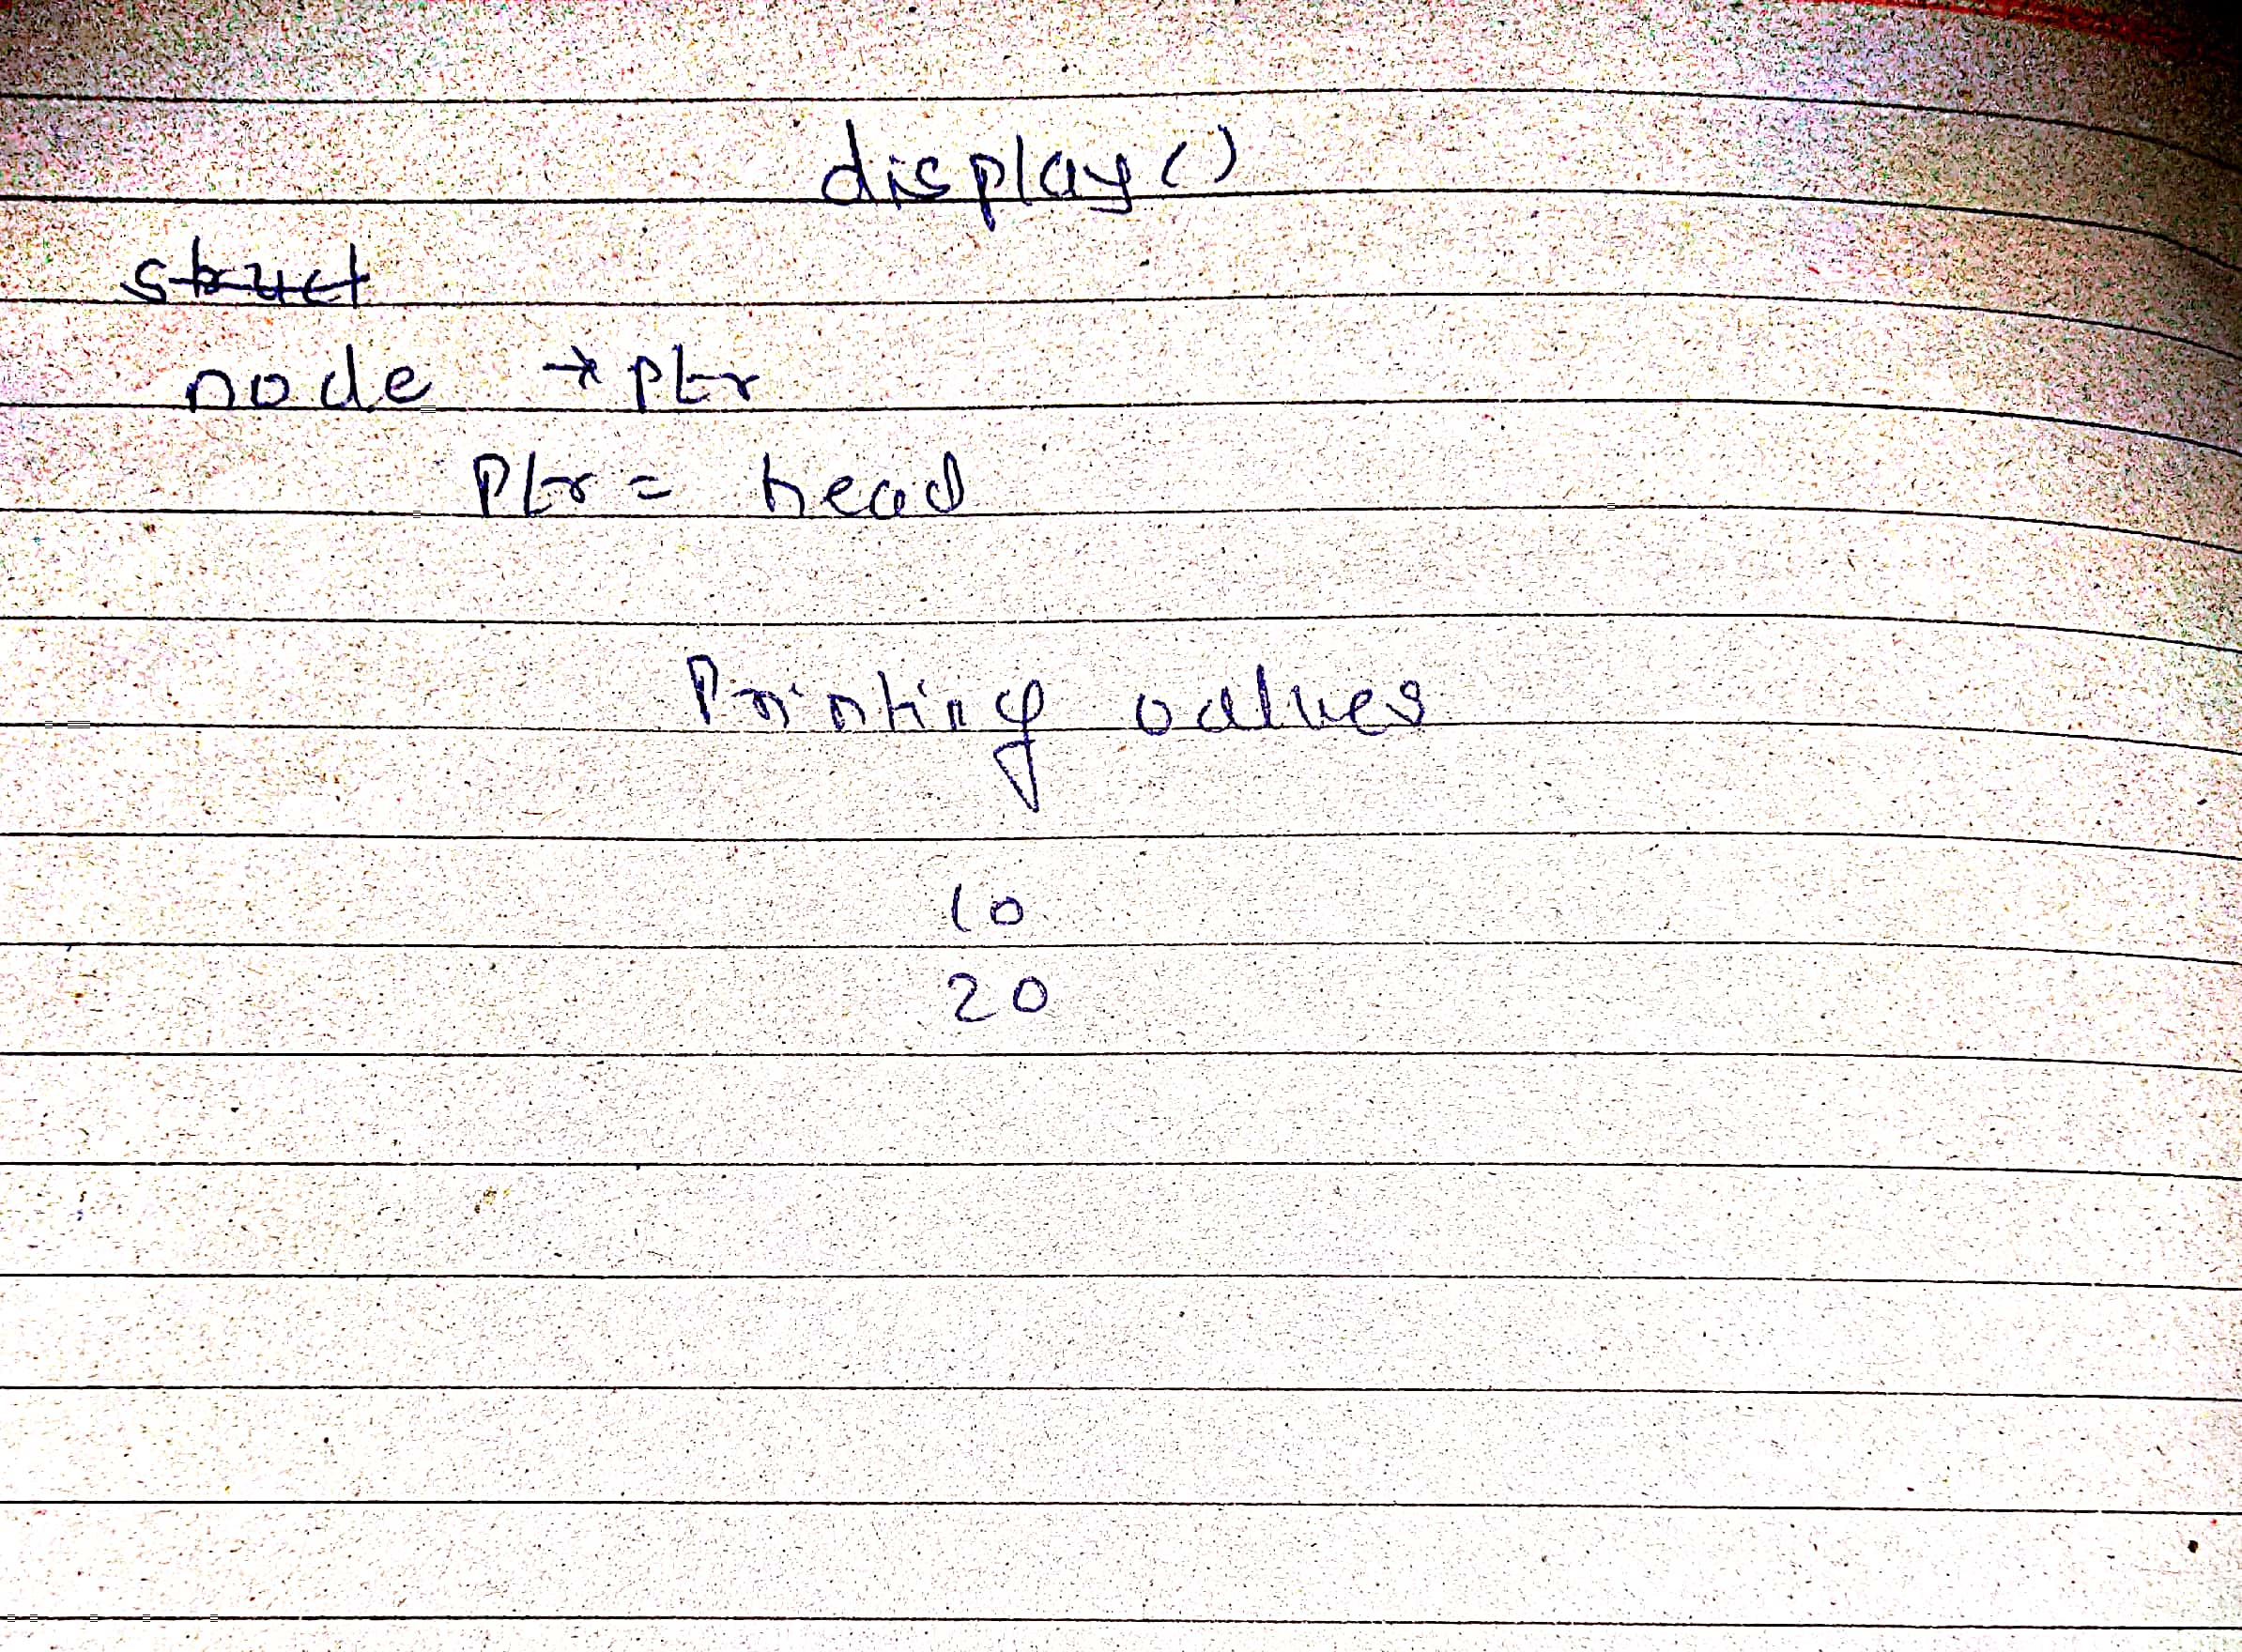 display()
struct
node *ptr
Ptr = head
Printing values
10
20